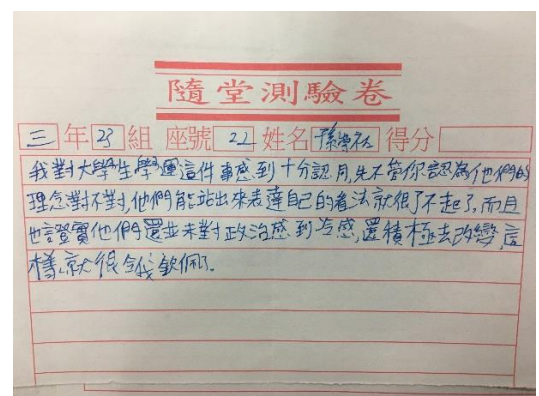 隨堂測驗卷
三年23組 座號22姓名孫學 得分
我對大學生學運這件事感到十分認同,先不管你認為他們的
理念對不對,他們能站出來表達自己的看法就很了不起了,而且
也證實他們還並未對政治感到冷感,還積極去改變,這
樣就很令我欽佩了。